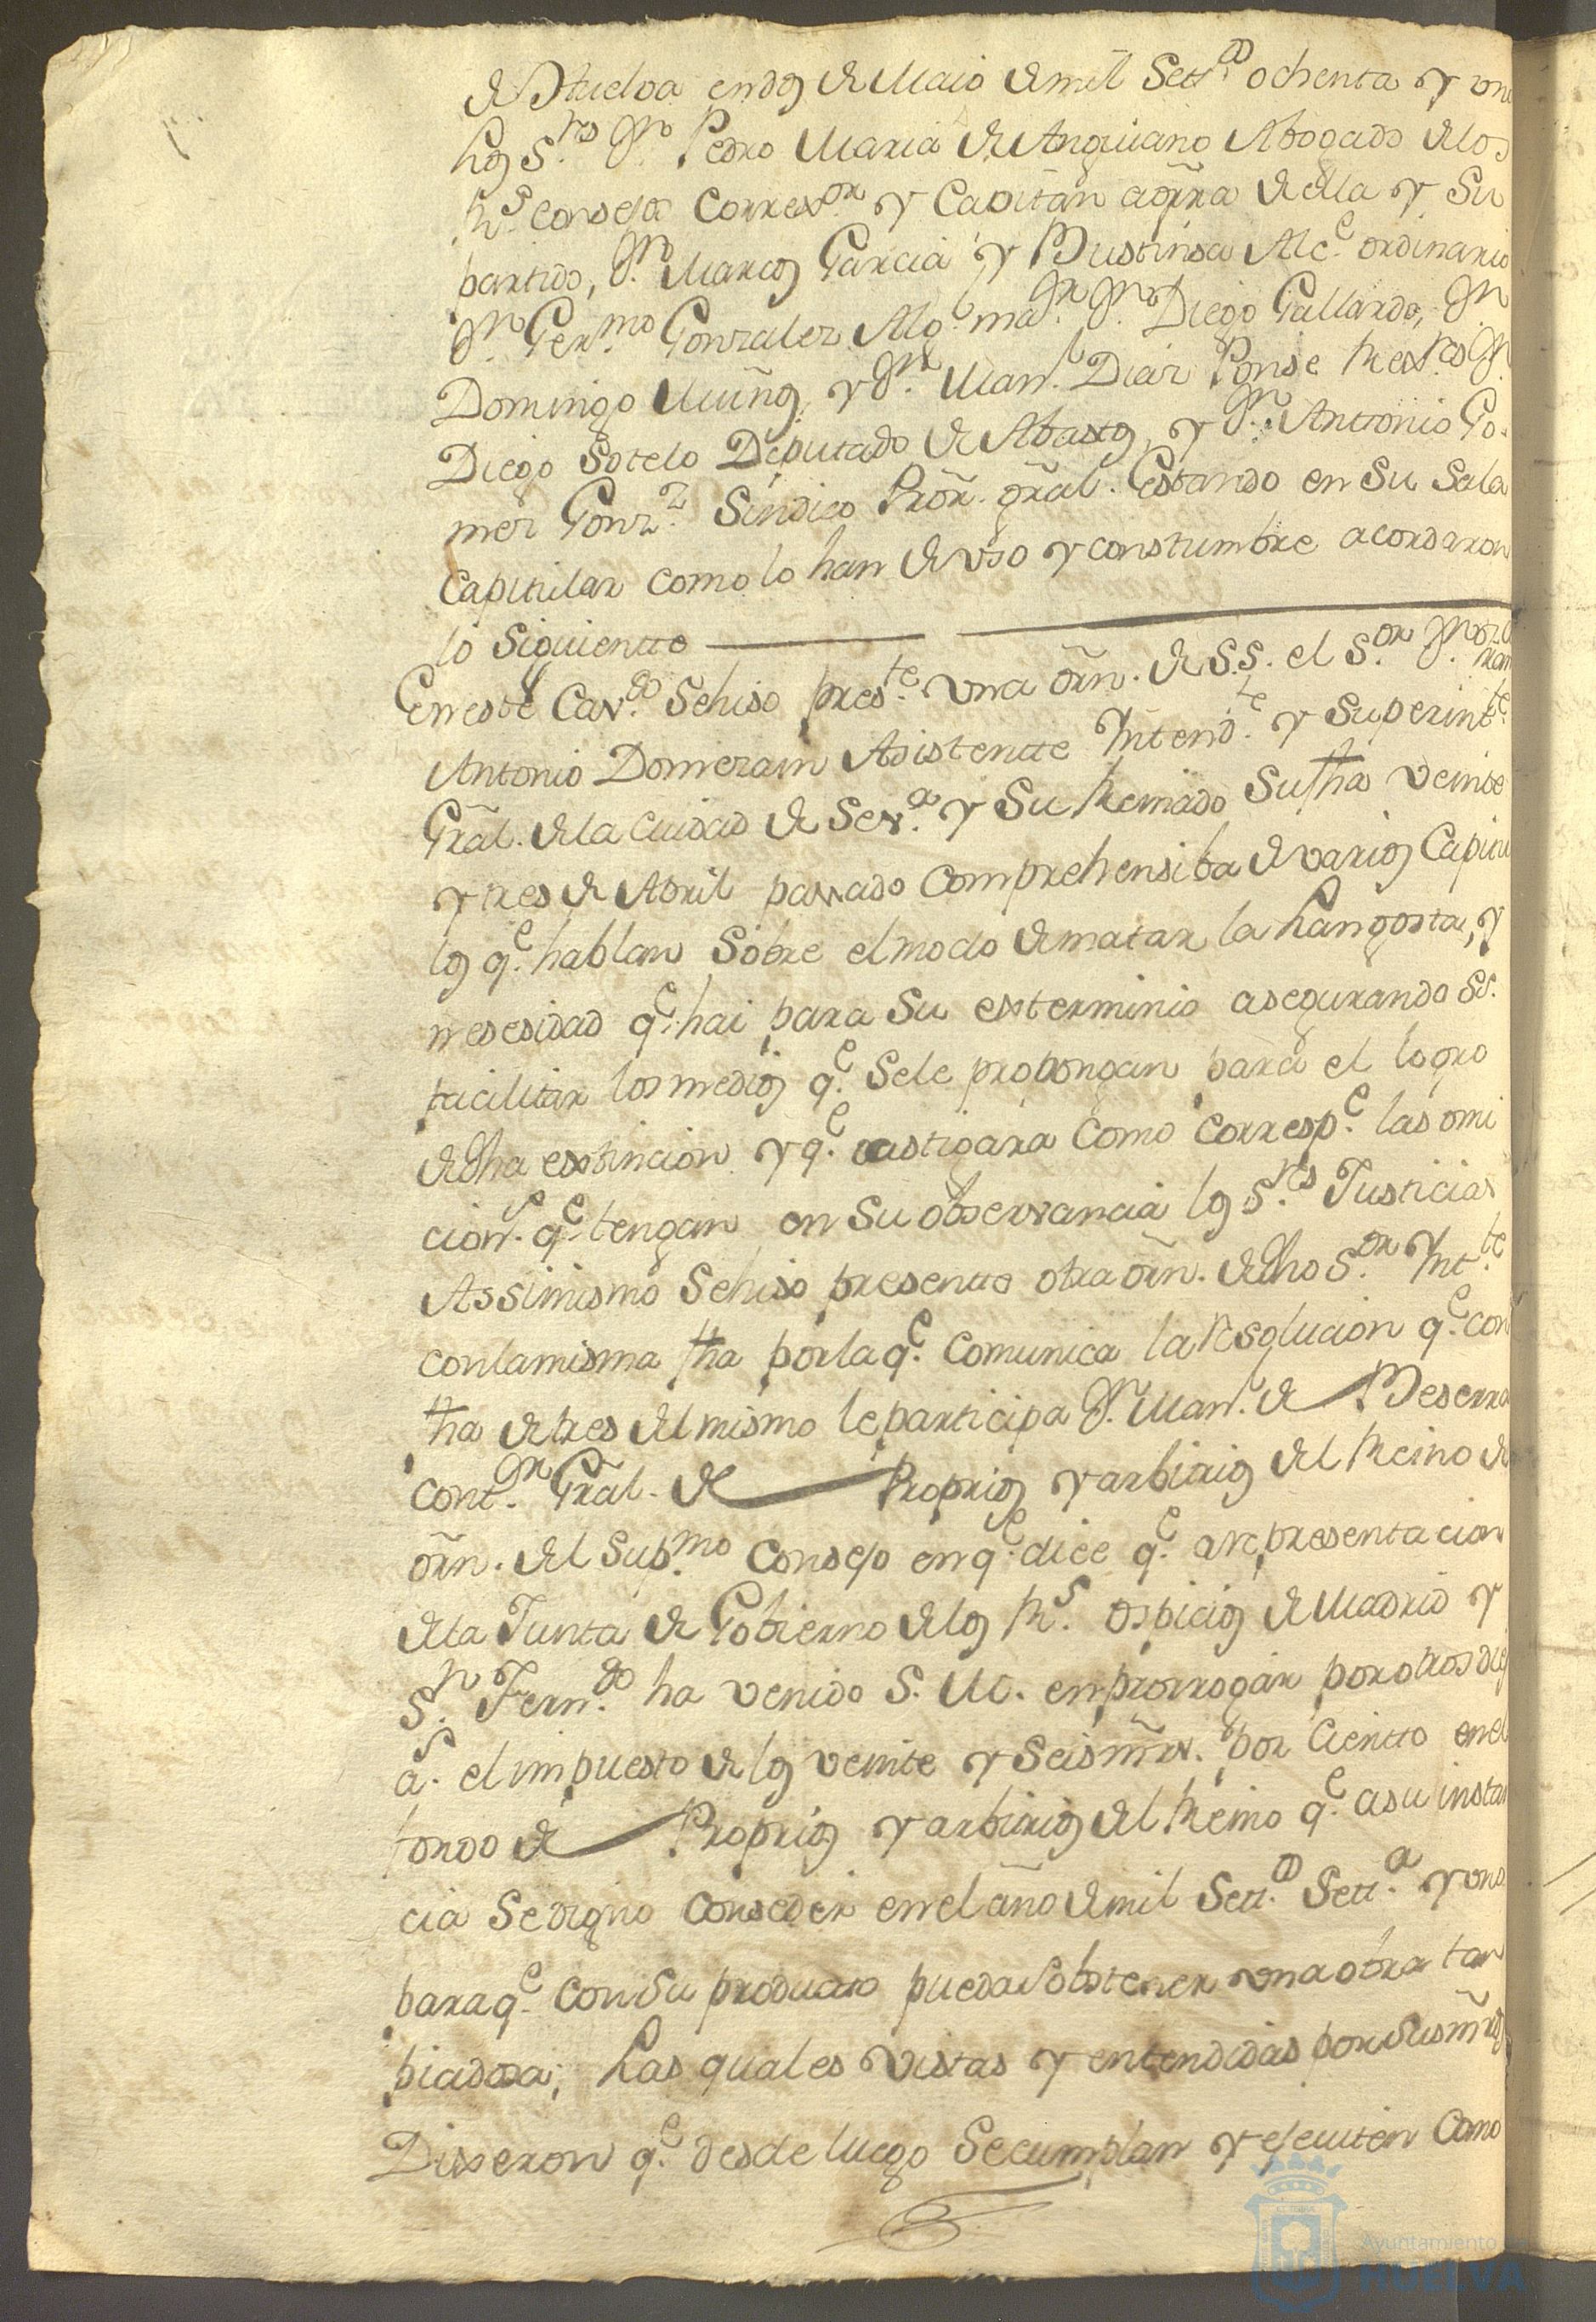 de Huelva en dos de Maio de mil Sett.os ochenta y un
los S.res D.n Pedro Maria de Anguiano Abogado de los
R.s consejos Correx.or y Capitan aGrra de ella y su
partido, D.n Marcos Garcia y Bustinsa Alc.e ordinario
D.n Ger.mo Gonzalez Alg.l ma.or D.n Diego Gallardo, D.n
Domingo Muñoz, y D.n Man.l Diaz Ponse Rex.res D.n
Diego Sotelo Deputado de Abastos, y D.n Antonio Go-
mez Gonz.z Sindico Prõr. grãl. Estando en su Sala
Capitular como lo han de uso y constumbre acordaron
lo siguiente
En este Cav.do se hiso pres.te una orñ. de S.S. el S.or D.n
Antonio Domezain Asistente Yntend.te y Superint.te
Grãl. de la ciudad de Sev.a y su Reinado su fha veinte
y tres de Abril passado comprehensiba de varios Capitu
los q.e hablan sobre el modo de matar la Langosta, y
nesesidad q.e hai para su exterminio asegurando SS.
facilitar los medios q.e se le propongan para el logro
de dha extincion y q.e castigara como corresp.e las omi
cion.s q.e tengan en su observancia los S.res Justicias
Assimismo se hiso presente otra orñ. de dho S.or Ynt.te
con la misma fha por la q.e comunica la resolucion q.e con
fha de tres del mismo le participa D.n Man.l de Beserra
Cont.or Grãl. de Proprios y arbitrios del Reino de
orñ. del Sup.mo Consejo en q.e dice q.e a representacion
de la Junta de Gobierno de los R.s ospicios de Madrid y
S.n Fern.do ha venido S.M. en prorrogar por otros diez
a.s el impuesto de los veinte y seis mrs. por Ciento en el
fondo de Proprios y arbitrios del Reino q.e a su instan
cia se digno conseder en el año de mil Sett.os Sett.a y uno
para q.e con su producto pueda sobstener una obra tan
piadosa; Las quales vistas y entendidas por sus mrds
Dixeron q.e desde luego se cumplan y ejecuten como
Ayuntamiento de
HUELVA